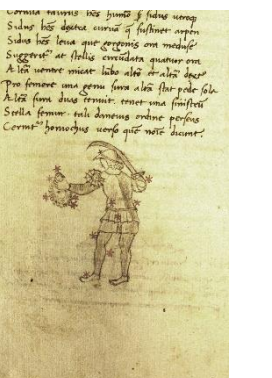 Cornua taurus hēs humō
Sidus hēs dextra curuā q̄ sustinet arpen
Sidus hēs leua que gorgonis ora meduse
Suggerit at stellis circūdata quatuor ora
Altā ventre micat lūbo altā et altā dext
Pro femore una genu sura altā stat pede sola
Altā sura duas tenuit tenet una sinistrū
Stella femur tali daneius ordine perseus
Cernit heniochus verso quē noīe dicunt